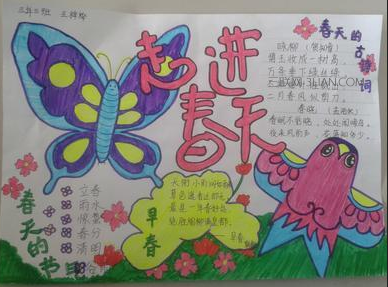 三年二班 王梓怜
走进
春天
春天的古诗词
咏柳 (贺知章)
碧玉妆成一树高,
万条垂下绿丝绦
二月春风似剪刀。
春晓 (孟浩然)
春眠不觉晓,处处闻啼鸟
夜来风雨声,花落知多少。
早春
天街小雨润如酥
草色遥看近却无
最是一年春好处
绝胜烟柳满皇都。
春天的节气
立春
雨水
惊蛰
春分
清明
谷雨